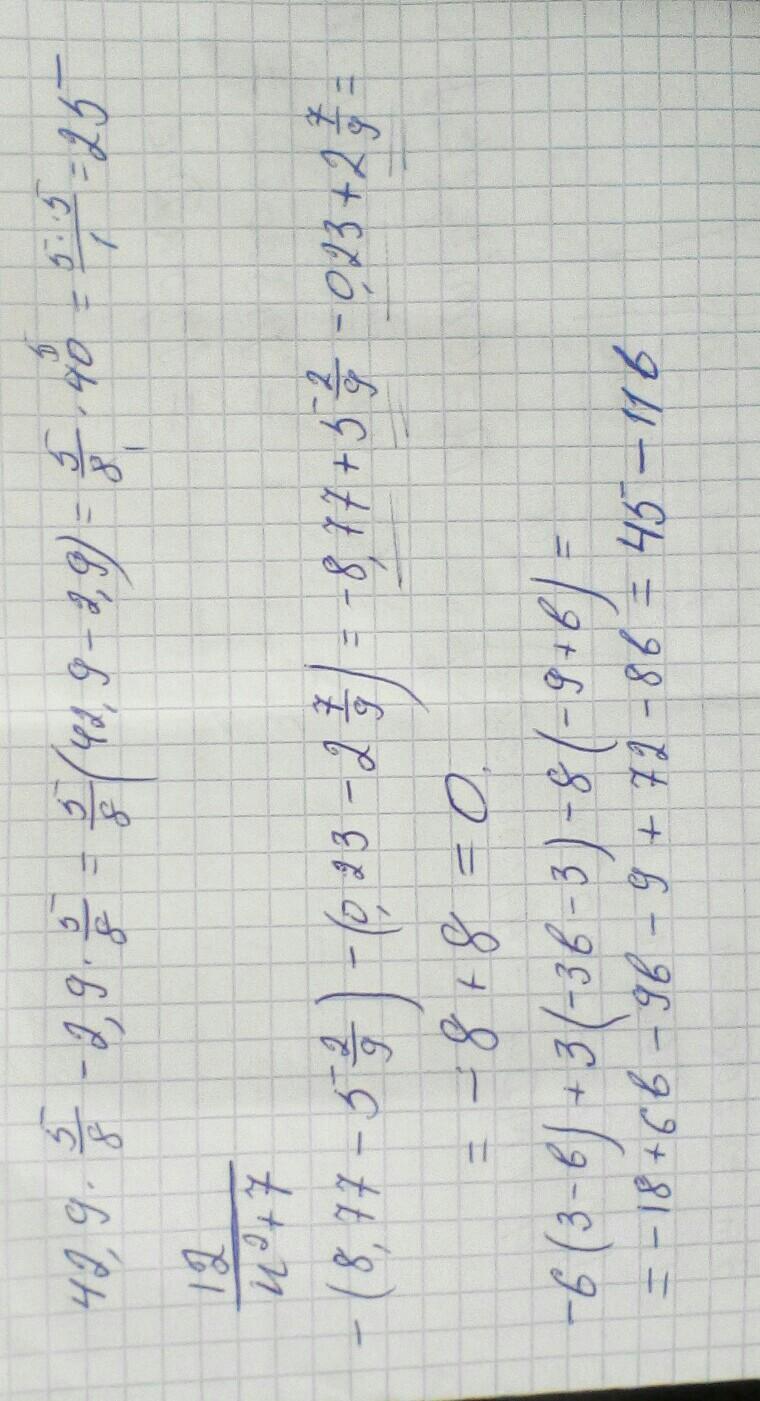 42,9 · 5/8 - 2,9 · 5/8 = 5/8 (42,9 - 2,9) = 5/8 · 40 = 5·5/1 = 25
12/n²+7
-(8,77 - 5 2/9) - (0,23 - 2 7/9) = -8,77 + 5 2/9 - 0,23 + 2 7/9 =
= -8 + 8 = 0.
-6(3-b) + 3(-3b-3) - 8(-9+b) =
= -18 + 6b - 9b - 9 + 72 - 8b = 45 - 11b